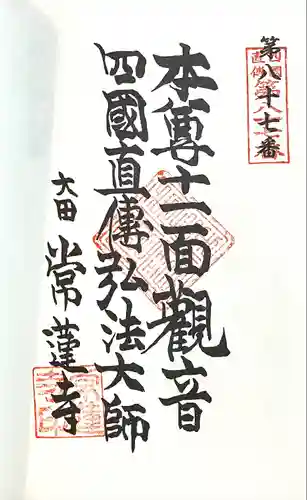 第八十七番
本尊十一面觀音
四國直傳弘法大師
太田
常蓮寺